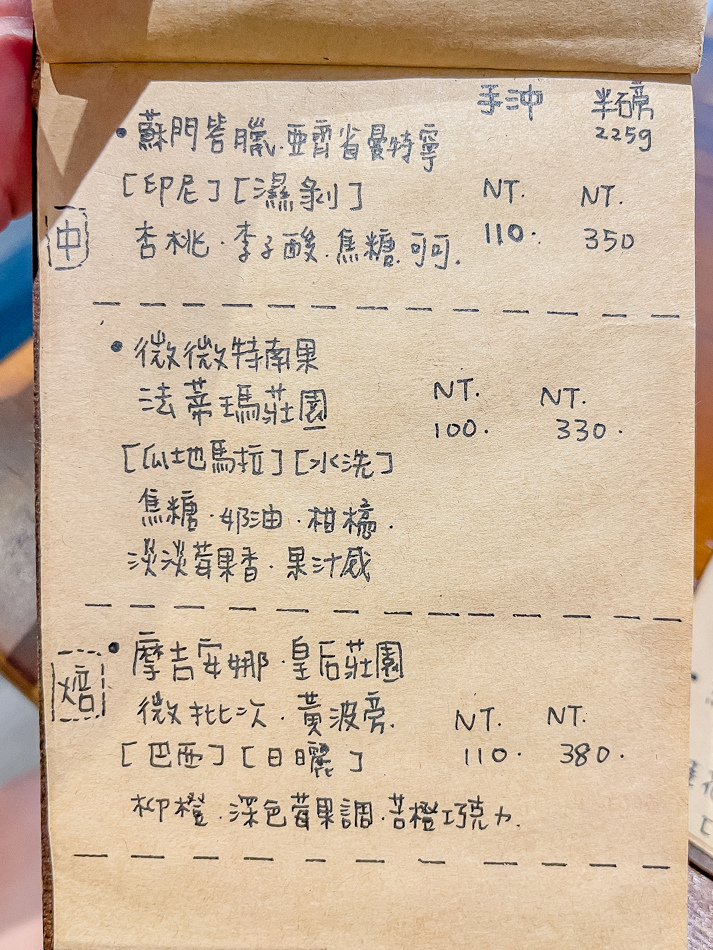 手沖 半磅
225g
•蘇門答臘.亞齊省曼特寧
[印尼][濕剝] NT. NT.
中 杏桃.李子酸.焦糖.可可. 110. 350
•微微特南果
法蒂瑪莊園 NT. NT.
100. 330.
[瓜地馬拉][水洗]
焦糖.奶油.柑橘.
淡淡莓果香.果汁感
•摩吉安娜.皇后莊園
焙 微批次.黃波旁. NT. NT.
[巴西][日曬] 110. 380.
柳橙.深色莓果調.苦橙巧克力.